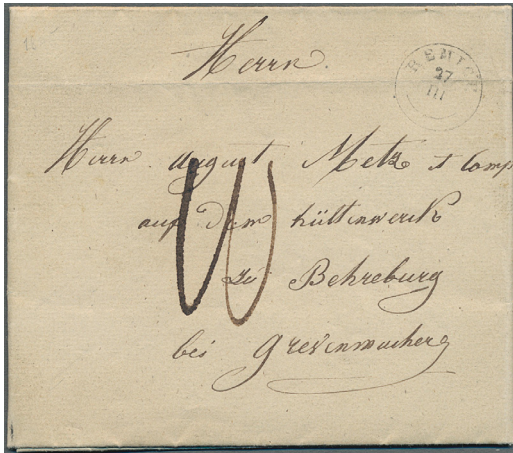 Herrn.
REMICH
27
III
Herrn August Metz & Comp
auf dem hüttenwerk
zu Behreburg
bei Grevenmacher